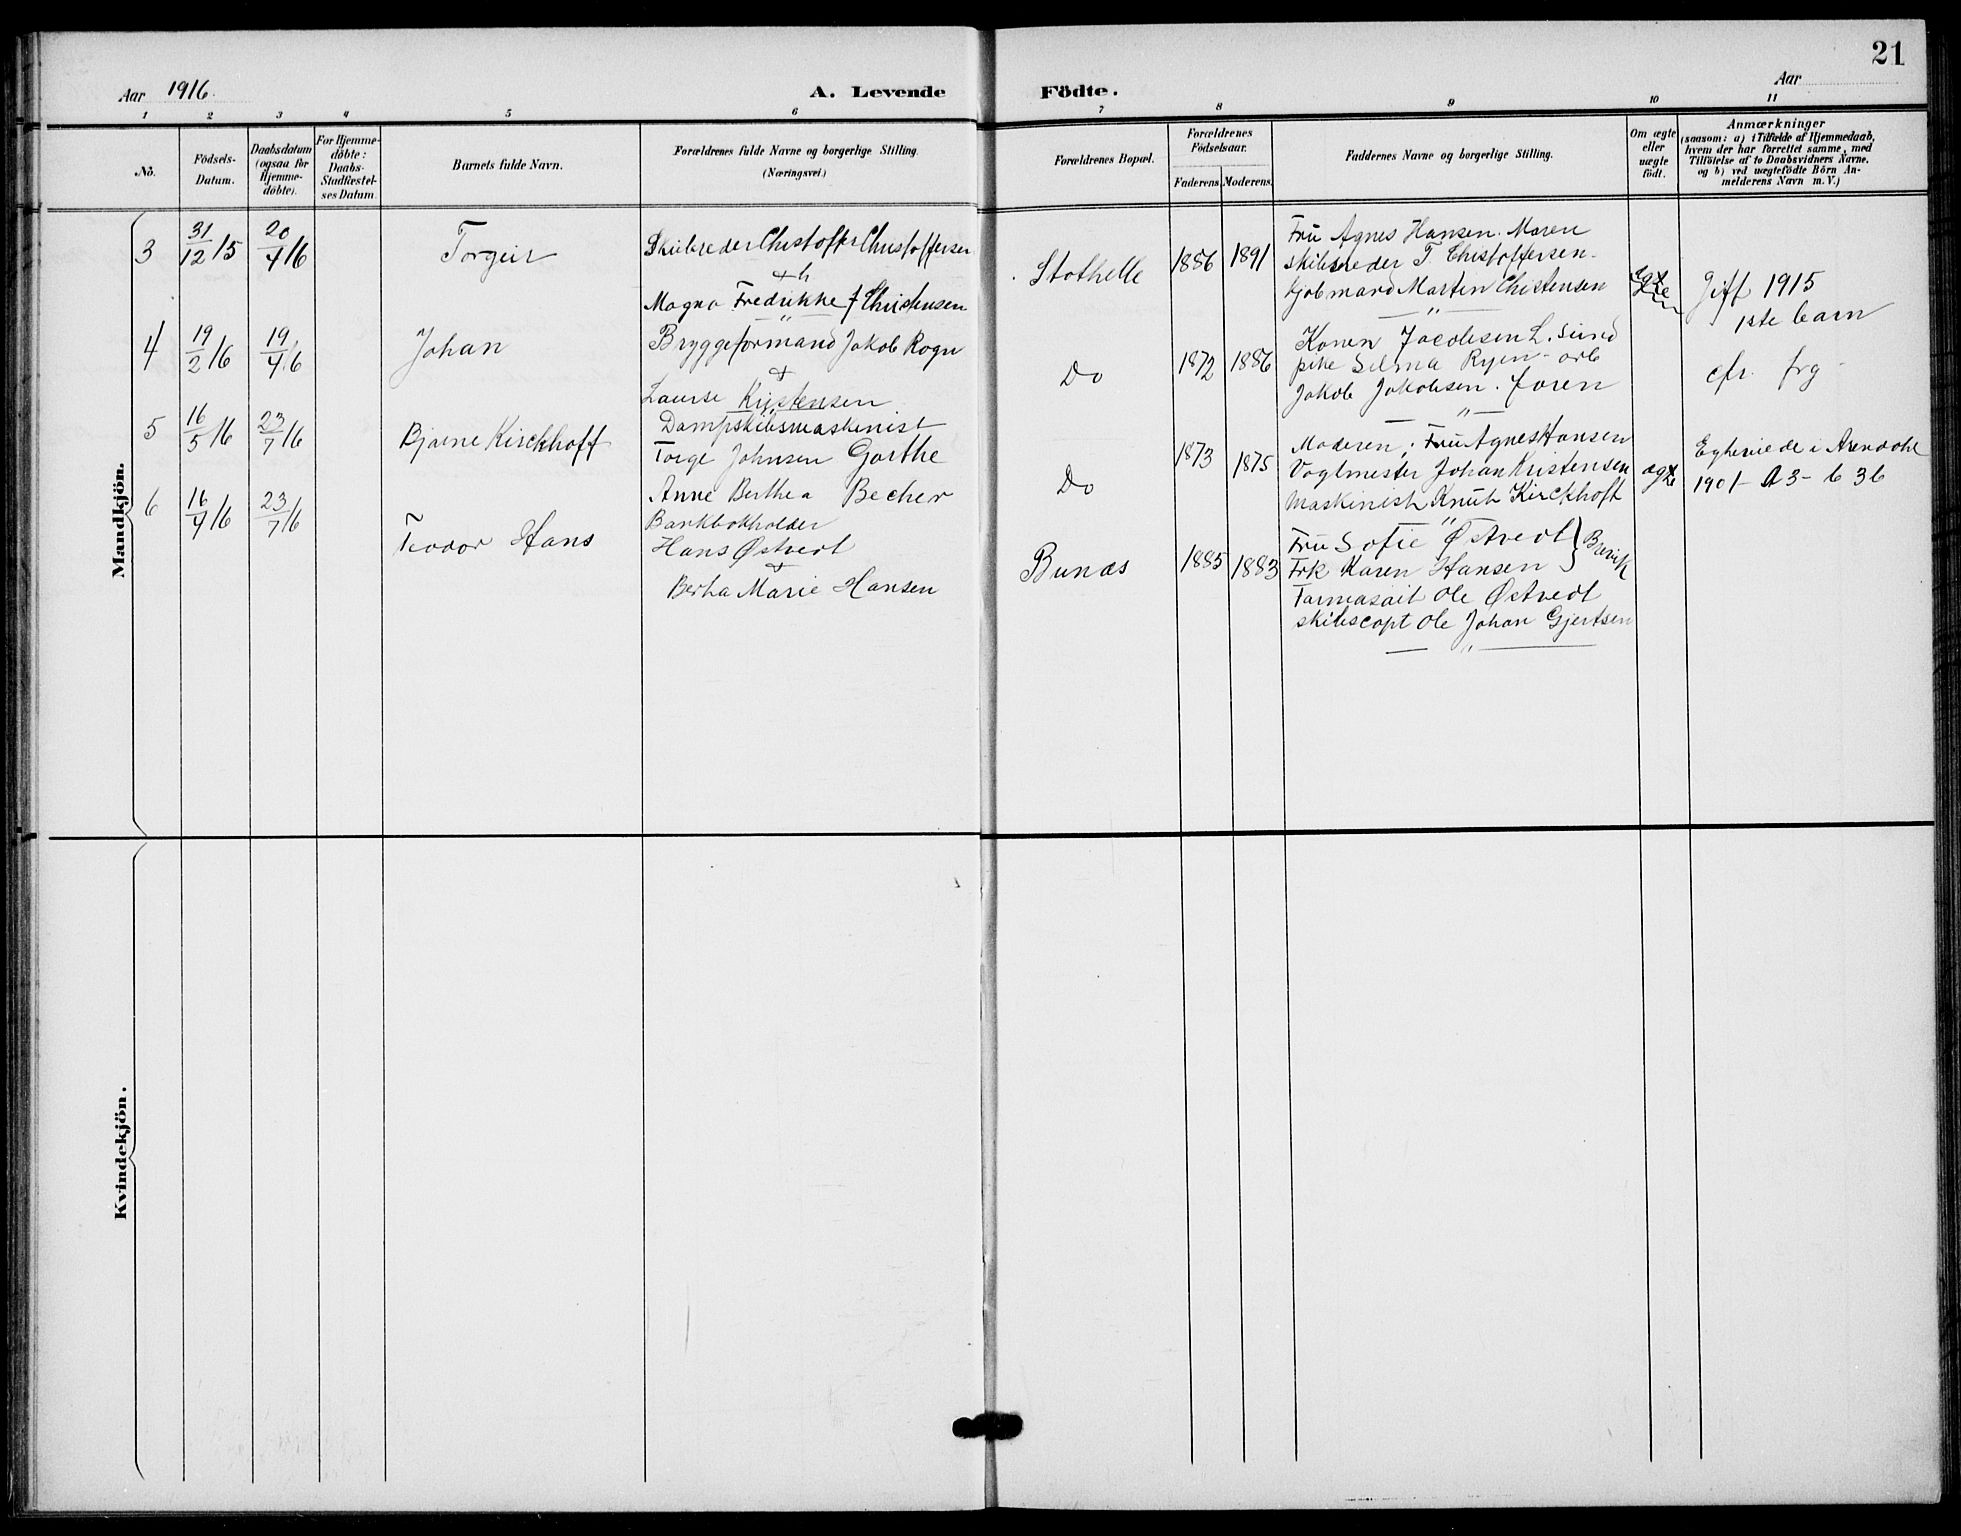 21
Aar 1916.
A. Levende Födte.
Aar
1 2 3 4 5 6 7 8 9 10 11
No.
Födsels-Datum.
Daabsdatum (ogsaa for Hjemme-döbte).
For Hjemme-döbte: Daabs-Stadfæstel-ses Datum.
Barnets fulde Navn.
Forældrenes fulde Navne og borgerlige Stilling. (Næringsvei.)
Forældrenes Bopæl.
Forældrenes Födselsaar.
Faderens. Moderens.
Faddernes Navne og borgerlige Stilling.
Om ægte eller uægte födt.
Anmærkninger
(saasom: a) i Tilfælde af Hjemmedaab,
hvem der har forrettet samme, med
Tilföielse af to Daabsvidners Navne.
og b) ved uægtefödte Börn An-
melderens Navn m. V.)
Mandkjön.
3
31/12 15
20/4 16
Torgeir
Skibsreder Chistoffer Christoffersen
Magna Fredrikke f Christensen
Stathelle
1886
1891
Fru Agnes Hansen. Maren
skibsreder T. Chistoffersen.
kjøbmand Marten Chistensen
— " —
Gift 1915
1ste barn
4
19/2 16
19/4 16
Johan
Bryggeformand Jakob Rogn
&
Laurse Kristensen
Do
1872
1886
Konen Jacobsen L. Sund
pike Selma Ryen - arb
Jakob Jakobsen. faren
— " —
cfr. frg
5
16/5 16
23/7 16
Bjarne Kirckhoff
Dampskibsmaskinist
Torge Johnsen Garthe
Anne Berthea Becher
Do
1873
1875
Moderen; Fru Agnes Hansen
Vagtmester Johan Kristensen
Maskinist Knut Kirckhoff
"
ægte
Egteviede i Arendahl
1901 - A 3 - 6 36
6
16/4 16
23/7 16
Teodor Hans
Bankbokholder
Hans Østvedt
&
Berha Marie Hansen
Bunæs
1885
1883
Fru Sofie Østvedt } Brevik
Frk Karen Hansen
Farmasøit Ole Østvedt
skibscapt Ole Johan Gjertsen
— " —
Kvindekjön.